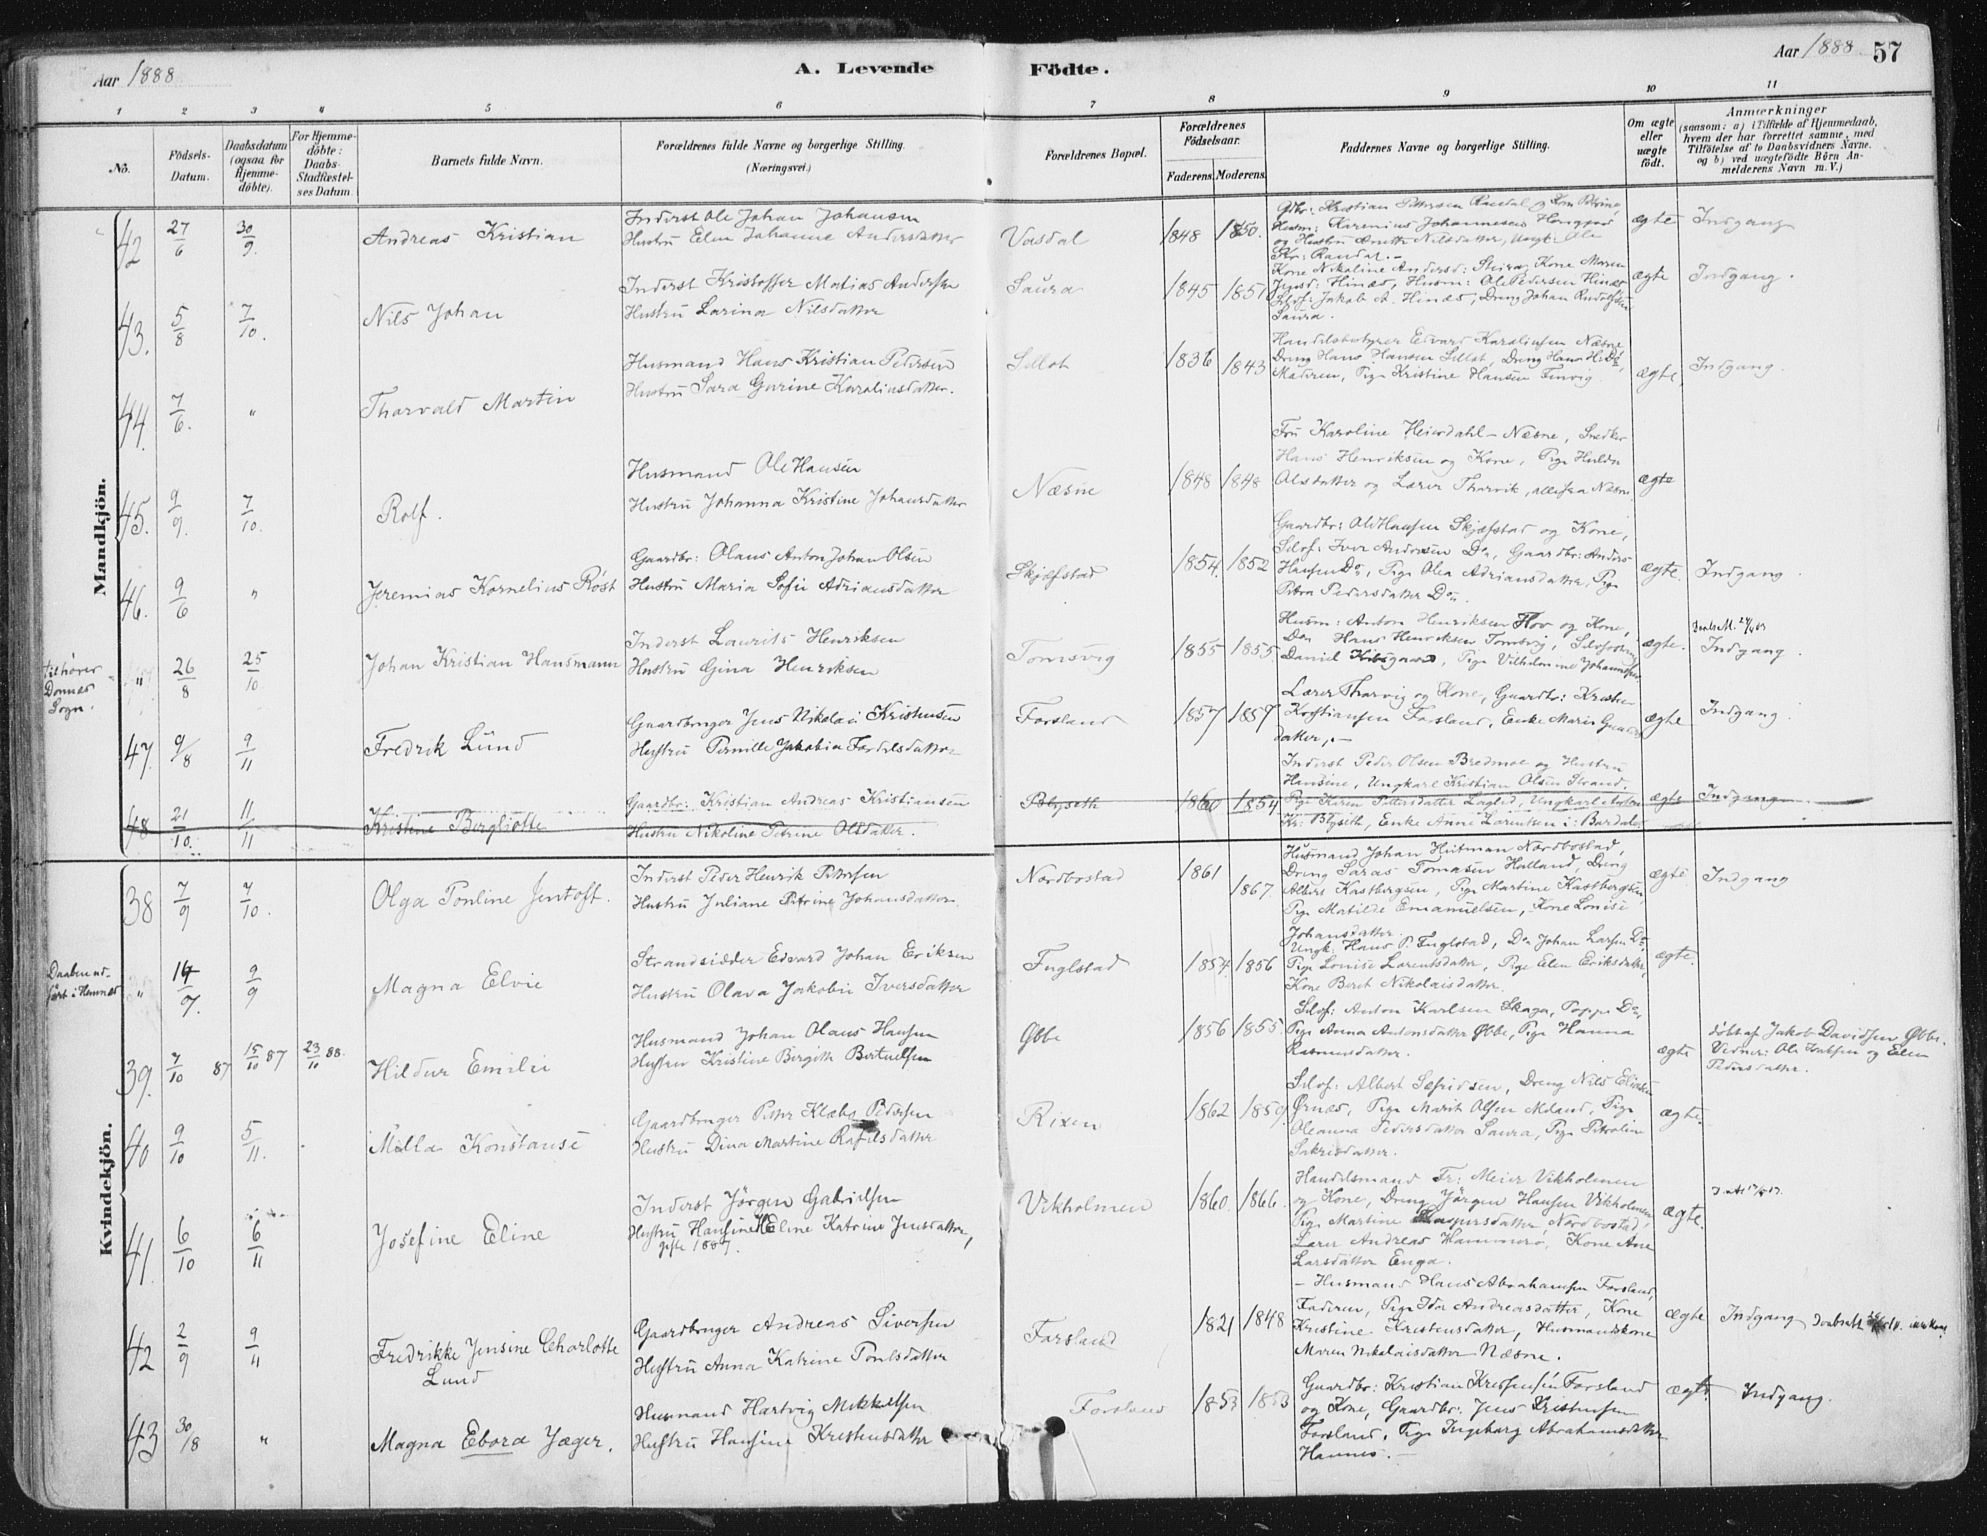 Aar 1888
A. Levende Födte.
Aar 1888 57
1 2 3 4 5 6 7 8 9 10 11
No.
Födsels-Datum.
Daabsdatum (ogsaa for Hjemme-döbte).
For Hjemme-döbte: Daabs-Stadfæstel-ses Datum.
Barnets fulde Navn.
Forældrenes fulde Navne og borgerlige Stilling. (Næringsvei.)
Forældrenes Bopæl.
Forældrenes Födselsaar. Faderens. Moderens.
Faddernes Navne og borgerlige Stilling.
Om ægte eller uægte födt.
Anmærkninger (saasom: a) i Tilfælde af Hjemmedaab, hvem der har forrettet samme, med Tilföielse af to Daabsvidners Navne. og b) ved uægtefödte Börn Anmelderens Navn m. V.)
Mandkjön.
42 27/6 30/9. Andreas Kristian
Inderst Ole Johan Johansen
Hustru Elen Johanna Andersdatter
Vasdal 1848 1850. ægte Indgang
43. 5/8 7/10. Nils Johan
Inderst Kristoffer Matias Andersen
Hustru Larina Nilsdatter
Saura 1845 1851
Kone Nikoline Andersd: Kone Maren
Jensd: Hinæs, Husm: Ole Pedersen Hinæs
Selof: Jakob A. Hinæs, Dreng Johan Rudolfsen
Saura.
ægte Indgang.
44. 7/6. " Thorvald Martin
Husmand Hans Kristian Pedersen
Hustru Sara Gurine Karoliusdatter.
1836 1843
Handelsbestyrer Edvard Karoliusen Næsne
Moderen, Pige Kristine Hansen Finvig.
ægte, Indgang.
45. 9/9. 7/10. Rolf.
Husmand Ole Hansen
Hustru Johanna Kristine Johansdatter
Næsne 1848 1848
Fru Karoline Heierdahl - Næsne, Snedker
Hans Henriksen og Kone, Pige Hulda
Olsdatter og Lærer Thorvik, alle fra Næsne.
ægte
46. 9/6 " Jeremias Kornelius Röst
Gaardbr: Olaus Anton Johan Olsen
Hustru Maria Sofie Adriansdatter
Skjæfstad 1854. 1852
Gaardbr: Ole Hansen Skjæfstad og Kone,
Selof: Iver Andersen Do, Gaardbr: Anders
Hansen Do, Pige Olea Adriansdatter, Pige
Petra Pedersdatter Do.
ægte. Indgang.
Tilhører Dönnæs Sogn. " 26/8 25/10 Johan Kristian Hansmann
Inderst Laurits Henriksen
Hustru Gina Henriksen
Tomsvig 1855 1855.
Husm: Anton Henriksen Hov og Kone,
Do Hans Henriksen Tomsvig,
Daniel Pige Vilhelmine Johannesen
ægte. Indgang.
47. 9/8 9/11 Fredrik Lund
Gaardbruger Jens Nikolai Kristensen
Hustru Pernille Jakobia Fordelsdatter
Forsland 1857 1859
Lærer Thorvig og Kone, Gaardbr: Kristen
Kristiansen Forsland, Enke Maren
datter.
ægte Indgang.
48. 21/10. 11/11 Kristine Bergliotte
Gaardbr: Kristian Andreas Kristiansen
Hustru Nikoline Petrine Olsdatter.
Blyseth 1860 1854
Inderst Peder Olsen Bredmoe og Hustru
Hansine, Ungkarl Kristian Olsen Strand
Pige Karen Pettersdatter Ungkarl Anton
Kr: Blyseth, Enke Anne Larentsen i: Bardalen
ægte Indgang
Kvindekjön.
38 7/9 7/10. Olga Pouline Jentoft.
Inderst Peder Henrik Pettersen
Hustru Juliane Petrine Johansdatter
Nordbostad 1861 1867.
Husmand Johan Hutman Nordbostad,
Dreng Saras Tomasen Halland, Dreng
Albert Kastbergsen, Pige Martine Kastbergsen
Pige Matilde Emanuelsen, Kone Lovise
Johansdatter.
ægte. Indgang
Daaben ud-fört i Hemnæs " 14/7. 9/9 Magna Elvie
Strandsidder Edvard Johan Eriksen
Hustru Olava Jakobie Iversdatter
Fuglstad 1854. 1856
Ungk: Hans P. Fuglstad, Do Johan Larsen Do,
Pige Lovise Larentsdatter, Pige Elen Eriksdatter,
Kone Beret Nikolaisdatter.
ægte.
39. 7/10 87 15/10 87 23/10 88. Hildur Emilie
Husmand Johan Olaus Hansen
Hustru Kristine Bergitte Bertuelsen
Øbbe 1856 1855.
Selof: Anton Karlsen Skaga, Do,
Pige Anna Antonsdatter Øbbe, Pige Hanna
Rasmusdatter.
ægte
döbt af Jakob Davidsen Øbbe.
Vidner: Ole og Elen
Pedersdatter.
40 9/10 5/11. Milla Konstanse
Gaardbruger Petter Klæbo Pedersen
Hustru Dina Martine Rafelsdatter
Rixen 1862 1859.
Selof: Albert Sefridsen, Dreng Nils Eliasen
Ørnæs, Pige Marit Olsen Meland, Pige
Oleanna Pedersdatter Saura, Pige Petroline
Sakrisdatter.
ægte.
41. 6/10 6/11 Josefine Eline
Inderst Jörgen Gabrielsen
Hustru Hansine Eline Katrine Jensdatter,
gifte 1887.
Vikholmen 1860. 1866.
Handelsmand Fr: Meier Vikholmen
og Kone, Dreng Jörgen Hansen Vikholmen,
Pige Martine Kaspersdatter Nordbostad,
Lærer Andreas Hammerö, Kone Ane
Larsdatter Enga.
ægte.
42 2/9 9/11 Fredrikke Jensine Charlotte Lund
Gaardbruger Andreas Sivertsen
Hustru Anna Katrine Poulsdatter
Forsland 1821 1848
- Husmand Hans Abrahamsen Forsland,
Faderen, Pige Ida Andreasdatter, Kone
Kristine Kristensdatter, Husmandskone
Maren Nikolaisdatter Næsne.
ægte Indgang
43 30/8 " Magna Ebora Jæger.
Husmand Hartvig Mikkelsen
Hustru Hansine Kristensdatter
Forsland 1853 1853
Gaardbr: Kristian Kristensen Forsland
og Kone, Gaardbr: Jens Kristensen
Forsland, Pige Ingeborg Abrahamsdatter
Hannes.
ægte. Indgang.